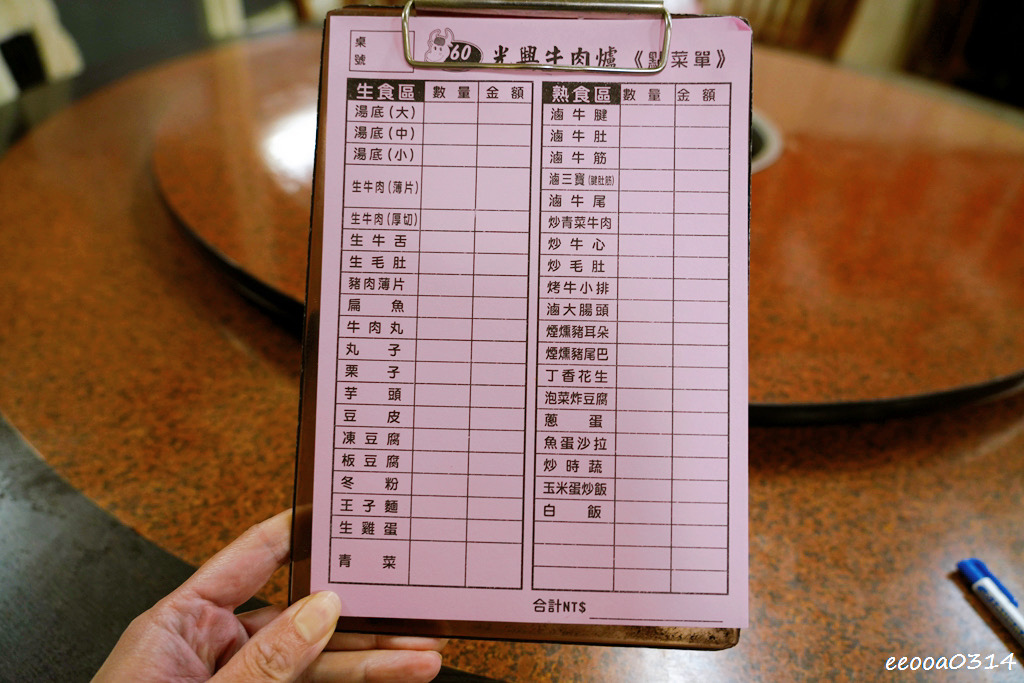 桌號
60 光興牛肉爐 《點菜單》
生食區 數量 金額
湯底(大)
湯底(中)
湯底(小)
生牛肉(薄片)
生牛肉(厚切)
生牛舌
生毛肚
豬肉薄片
扁魚
牛肉丸
丸子
栗子
芋頭
豆皮
凍豆腐
板豆腐
冬粉
王子麵
生雞蛋
青菜
熟食區 數量 金額
滷牛腱
滷牛肚
滷牛筋
滷三寶(腱肚筋)
滷牛尾
炒青菜牛肉
炒牛心
炒毛肚
烤牛小排
滷大腸頭
煙燻豬耳朵
煙燻豬尾巴
丁香花生
泡菜炸豆腐
蔥蛋
魚蛋沙拉
炒時蔬
玉米蛋炒飯
白飯
合計NT$
eeooa0314